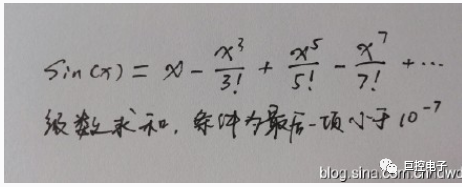 Sin(x) = x - x³/3! + x⁵/5! - x⁷/7! + ···
级数求和，条件为最后一项小于10⁻⁷
巨控电子
blog.sina.com.cn/dwd